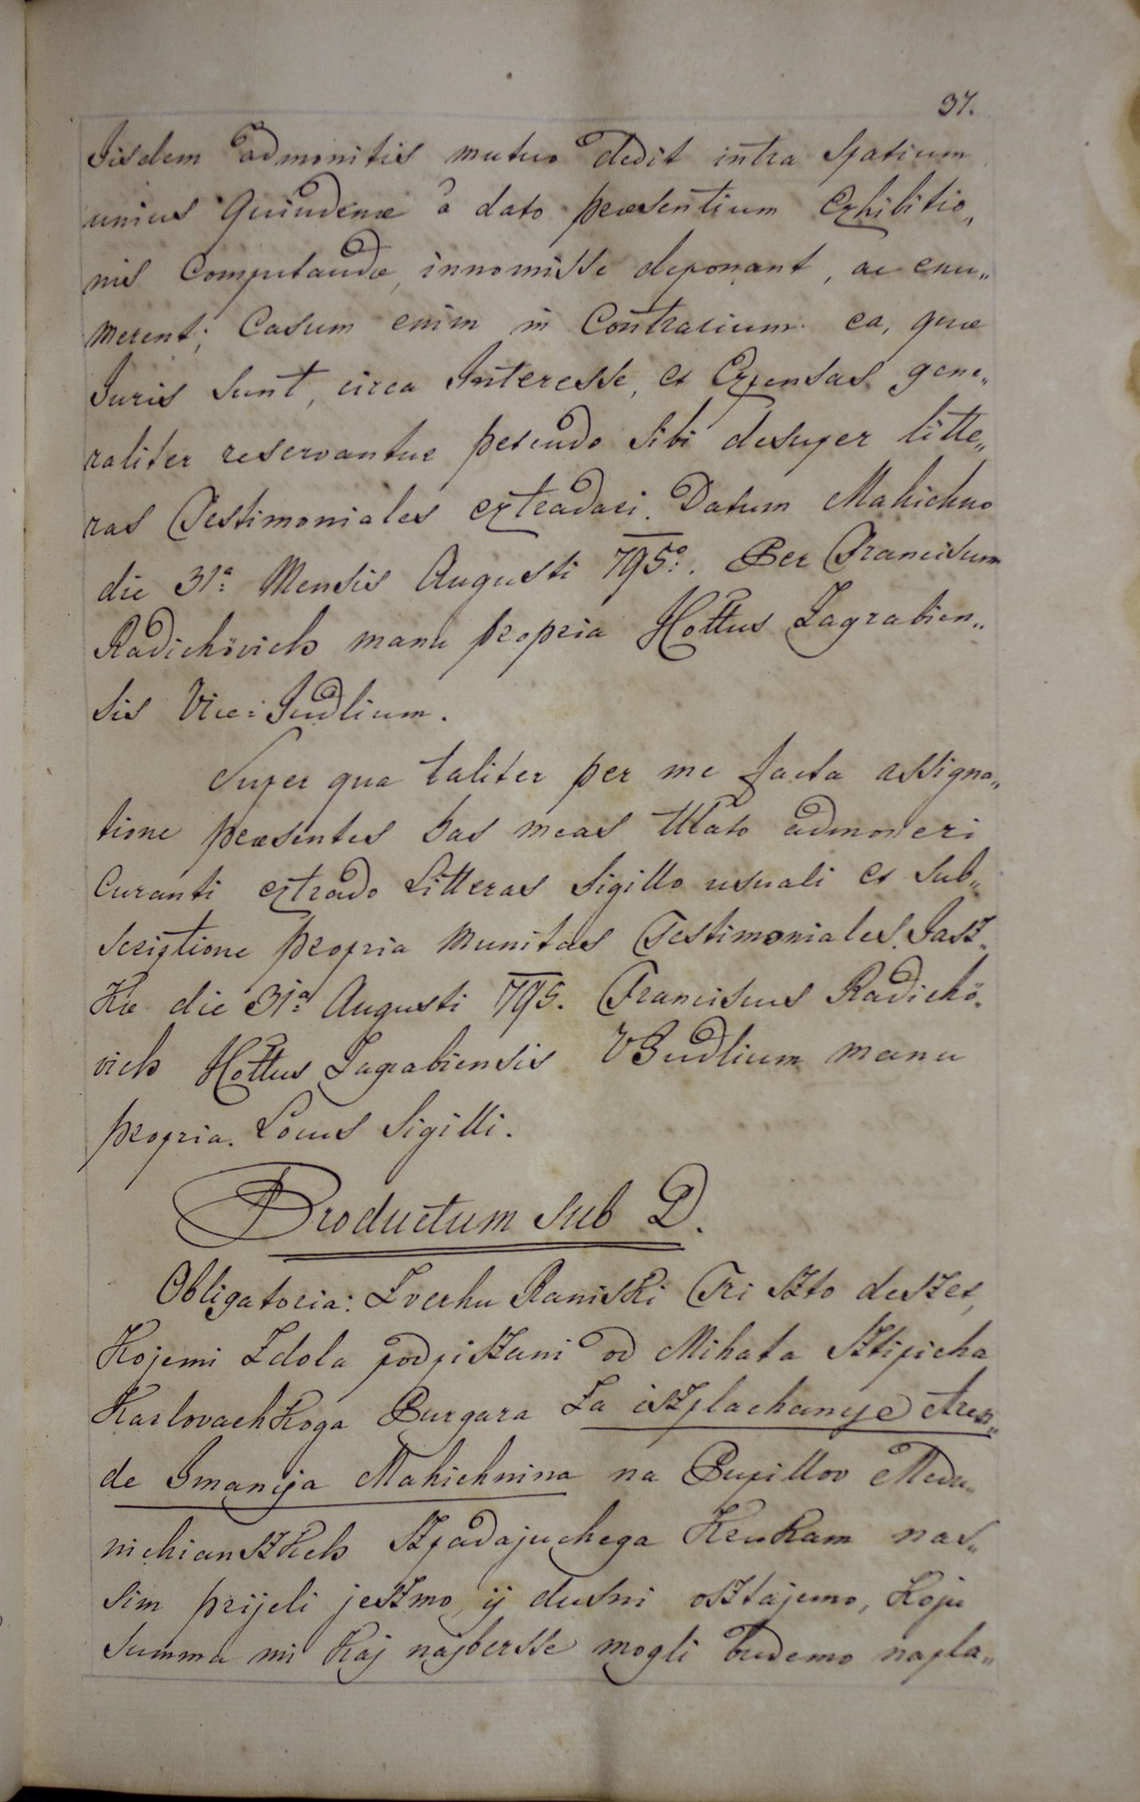 37.
Iisdem admonitis mutuo dedit intra Spatium
unius Quindenæ a dato præsentium Exhibitio„
nis Computandæ, innomisse deponant, ac enu„
merent; Casum enim in Contrarium ea, quæ
Juris Sunt, circa Interesse, et Expensas gene„
raliter reservantur petendo Sibi desuper litte„
ras Testimoniales extradari. Datum Mahichno
die 31ª Mensis Augusti 795º. Per Franciscum
Radichövich manu propria Hottus Zagrabien„
sis Vice: Judlium.
Super qua taliter per me facta assigna„
tione præsentes has meas ttlato admoneri
Curanti extrado Litteras Sigillo usuali et Sub„
scriptione propria munitas Testimoniales. Jasz„
kæ die 31ª Augusti 795. Franciscus Radichö„
vich Hottus Zagrabiensis VJudlium manu
propria. Locus Sigilli.
Productum sub D.
Obligatoria: Zverhu Raniski Tri szto deszet,
Kojemi Zdola podpiszani od Mihata Sztipicha
Karlovachkoga Purgara Za iszplachanye Aren„
de Imanija Mahichnina na Pupillov Medu„
nichianszkeh Szpadajuchega K rukam nas„
sim prijeli jeszmo, ij dusni osztajemo, Koju
Summu mi kaj najbersse mogli budemo napla„